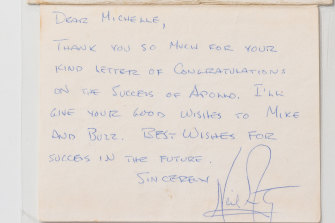 DEAR MICHELLE,
THANK YOU SO MUCH FOR YOUR
KIND LETTER OF CONGRATULATIONS
ON THE SUCCESS OF APOLLO. I'LL
GIVE YOUR GOOD WISHES TO MIKE
AND BUZZ. BEST WISHES FOR
SUCCESS IN THE FUTURE.
SINCERELY
Neil